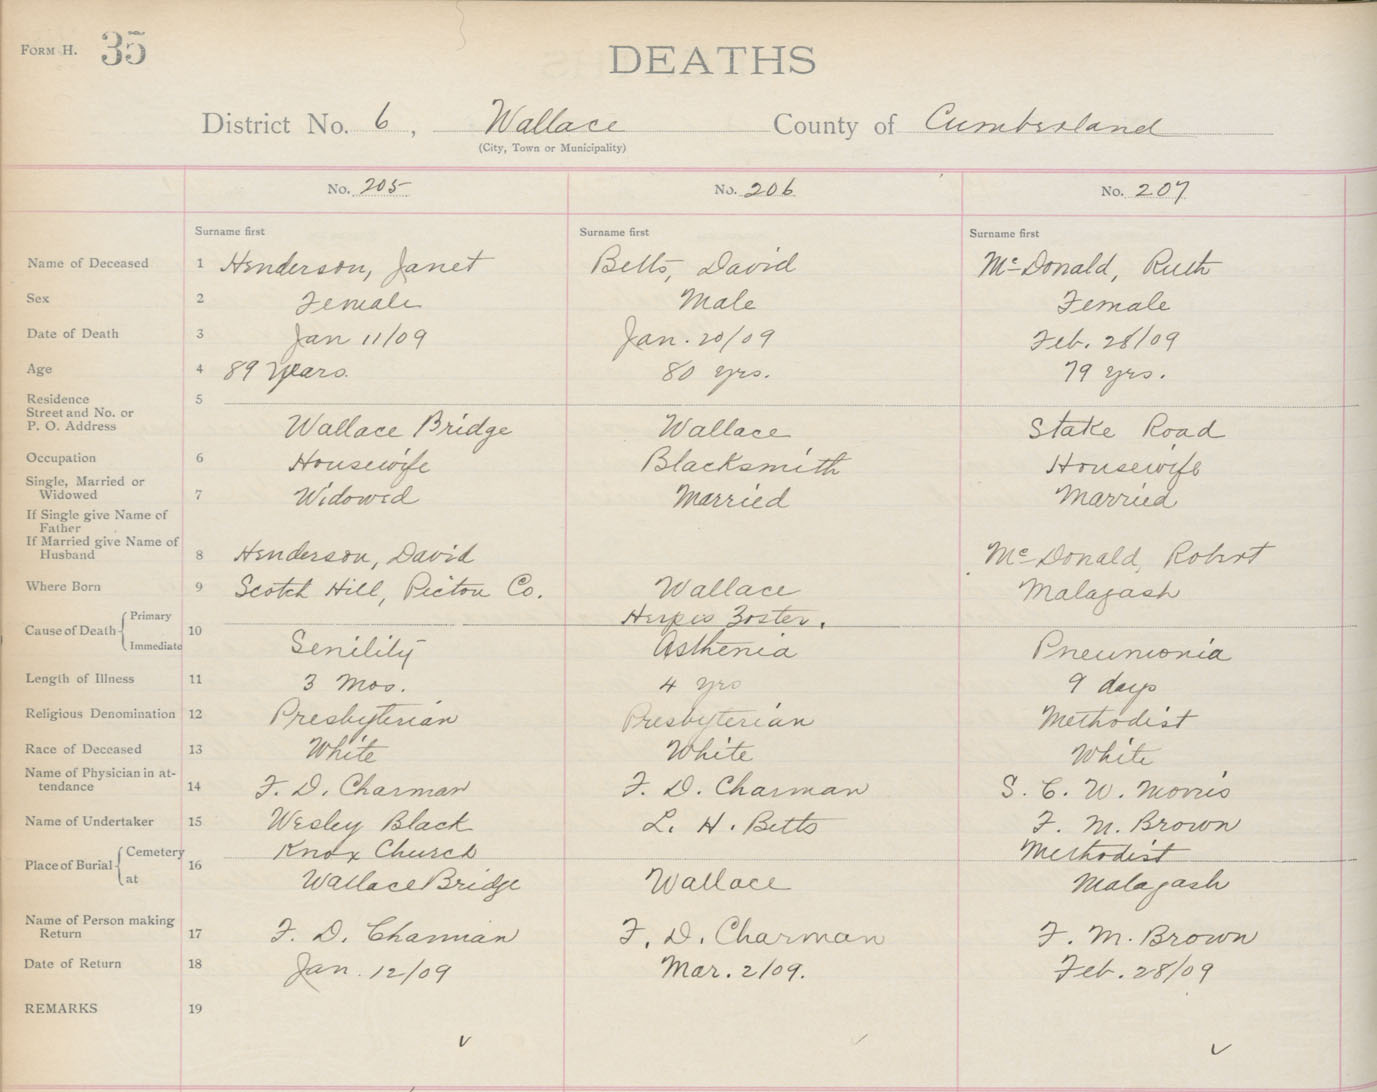 FORM H. 35
DEATHS
District No. 6, Wallace County of Cumberland
(City, Town or Municipality)
No. 205 No. 206 No. 207
Surname first Surname first Surname first
Name of Deceased 1 Henderson, Janet Betts, David McDonald, Ruth
Sex 2 Female Male Female
Date of Death 3 Jan 11/09 Jan. 20/09 Feb. 28/09
Age 4 89 Years. 80 yrs. 79 yrs.
Residence 5
Street and No. or
P. O. Address Wallace Bridge Wallace Stake Road
Occupation 6 Housewife Blacksmith Housewife
Single, Married or
Widowed 7 Widowed Married Married
If Single give Name of
Father
If Married give Name of
Husband 8 Henderson, David McDonald, Robert
Where Born 9 Scotch Hill, Pictou Co. Wallace Malagash
Cause of Death Primary 10 Herpes Zoster.
Immediate Senility Asthenia Pneumonia
Length of Illness 11 3 Mos. 4 yrs 9 days
Religious Denomination 12 Presbyterian Presbyterian Methodist
Race of Deceased 13 White White White
Name of Physician in at-
tendance 14 F. D. Charman F. D. Charman S. C. W. Morris
Name of Undertaker 15 Wesley Black L. H. Betts F. M. Brown
Place of Burial Cemetery 16 Knox Church Methodist
at Wallace Bridge Wallace Malagash
Name of Person making
Return 17 F. D. Charman F. D. Charman F. M. Brown
Date of Return 18 Jan. 12/09 Mar. 2/09. Feb. 28/09
REMARKS 19